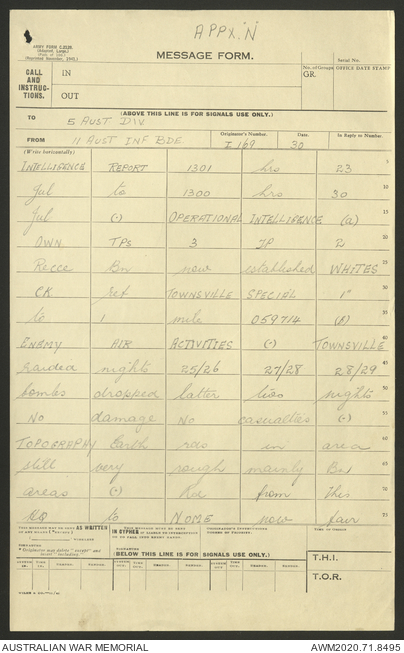 APPX. 'N'
ARMY FORM C.2128.
MESSAGE FORM.
Serial No.
CALL AND INSTRUC-TIONS.
IN
No. of Groups
OFFICE DATE STAMP
GR.
OUT
(ABOVE THIS LINE IS FOR SIGNALS USE ONLY.)
TO 5 AUST DIV
FROM 11 AUST INF BDE
Originator's Number. I 169
Date. 30
In Reply to Number.
(Write horizontally)
INTELLIGENCE REPORT 1301 hrs 23 5
Jul to 1300 hrs 30 10
Jul (.) OPERATIONAL INTELLIGENCE (a) 15
OWN TPs 3 2 20
Recce Bn now established WHITES 25
CK ref TOWNSVILLE SPECIAL 1" 30
to 1 mile 059714 35
ENEMY AIR ACTIVITIES (.) TOWNSVILLE 40
raided nights 25/26 27/28 28/29 45
bombs dropped latter two nights 50
No damage No casualties (.) 55
TOPOGRAPHY Earth rds in area 60
still very rough mainly Bn 65
areas (.) Rd from this 70
HQ to NOME now fair 75
THIS MESSAGE MAY BE SENT AS WRITTEN
IN CYPHER
TIME OF ORIGIN
(BELOW THIS LINE IS FOR SIGNALS USE ONLY.)
T.H.I.
T.O.R.
AUSTRALIAN WAR MEMORIAL
AWM2020.71.8495